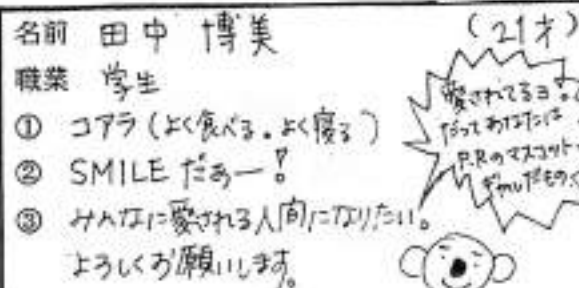 名前 田中 博美 (21才)
職業 学生
① コアラ(よく食べる。よく寝る)
② SMILE だぁー!
③ みんなに愛される人間になりたい。
よろしくお願いします。
愛されてるヨ。
だってあなたは
P.Rのマスコット
ギャルだもの